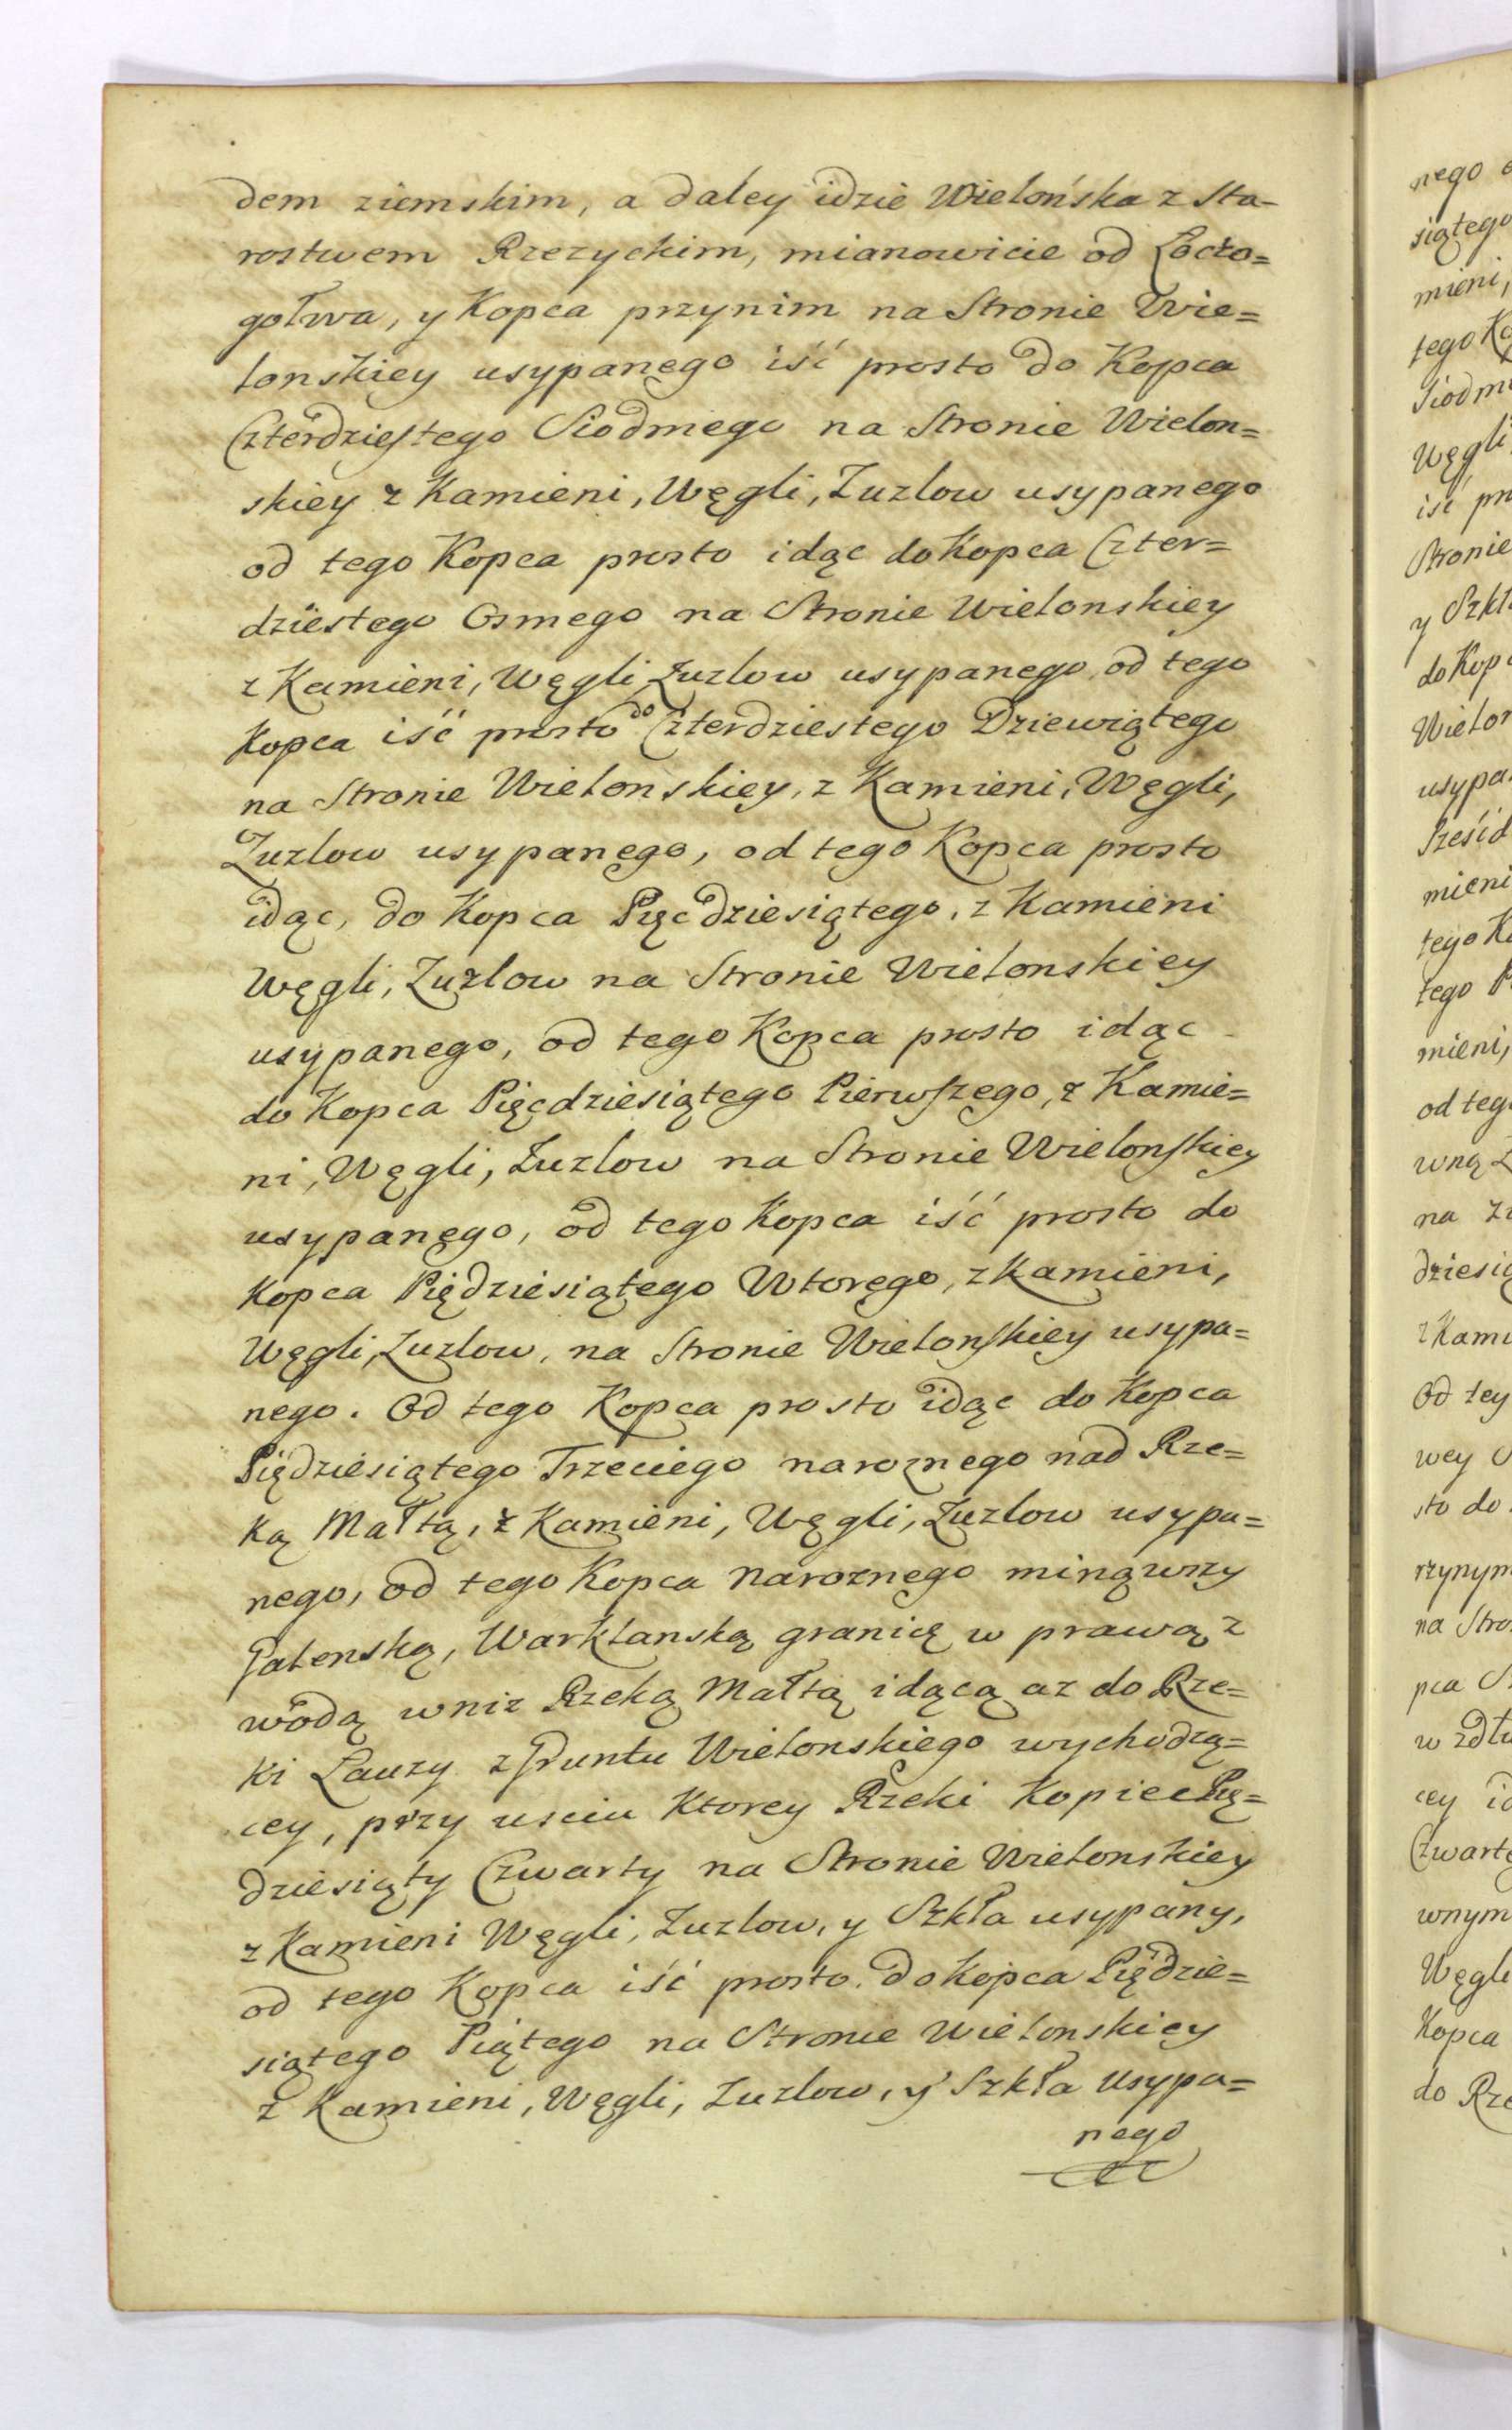 dem ziemskim, a daley idzie Wielońska z Sta-
rostwem Rzezyckim, mianowicie od
gotwa, y Kopca przynim na Stronie Wie=
lonskiey usypanego iść prosto do Kopca
Czterdziestego Siodmego na Stronie Wielon=
skiey z Kamieni, Węgli, Zuzlow usypanego
od tego Kopca prosto idąc do Kopca Czter=
dziestego Osmego na Stronie Wielonskiey
z Kamieni, Węgli, Zuzlow usypanego, od tego
Kopca iść prosto do Czterdziestego Dziewiątego
na Stronie Wielonskiey, z Kamieni, Węgli,
Zuzlow usypanego, od tego Kopca prosto
idąc, do Kopca Pięcdziesiątego, z Kamieni
Węgli, Zuzlow na Stronie Wielonskiey
usypanego, od tego Kopca prosto idąc
do Kopca Pięcdziesiątego Pierwszego, z Kamie=
ni, Węgli, Zuzlow na Stronie Wielonskiey
usypanego, od tego Kopca iść prosto do
Kopca Piędziesiątego Wtorego, z Kamieni,
Węgli, Zuzlow, na Stronie Wielonskiey usypa=
nego. Od tego Kopca prosto idąc do Kopca
Piędziesiątego Trzeciego naroznego nad Rze=
ką Małtą, z Kamieni, Węgli, Zuzlow usypa=
nego, od tego Kopca naroznego minąwszy
Galenską, Warklanską granicę w prawą z
wodą wniz Rzeką Małtą idącą az do Rze=
ki Lauzy z Gruntu Wielonskiego wychodzą=
cey, przy usciu Ktorey Rzeki Kopiec Pię=
dziesiąty Czwarty na Stronie Wielonskiey
z Kamieni Węgli, Zuzlow, y Szkła usypany,
od tego Kopca iść prosto do Kopca Piędzie=
siątego Piątego na Stronie Wielonskiey
z Kamieni, Węgli, Zuzlow, y Szkła usypa=
nego